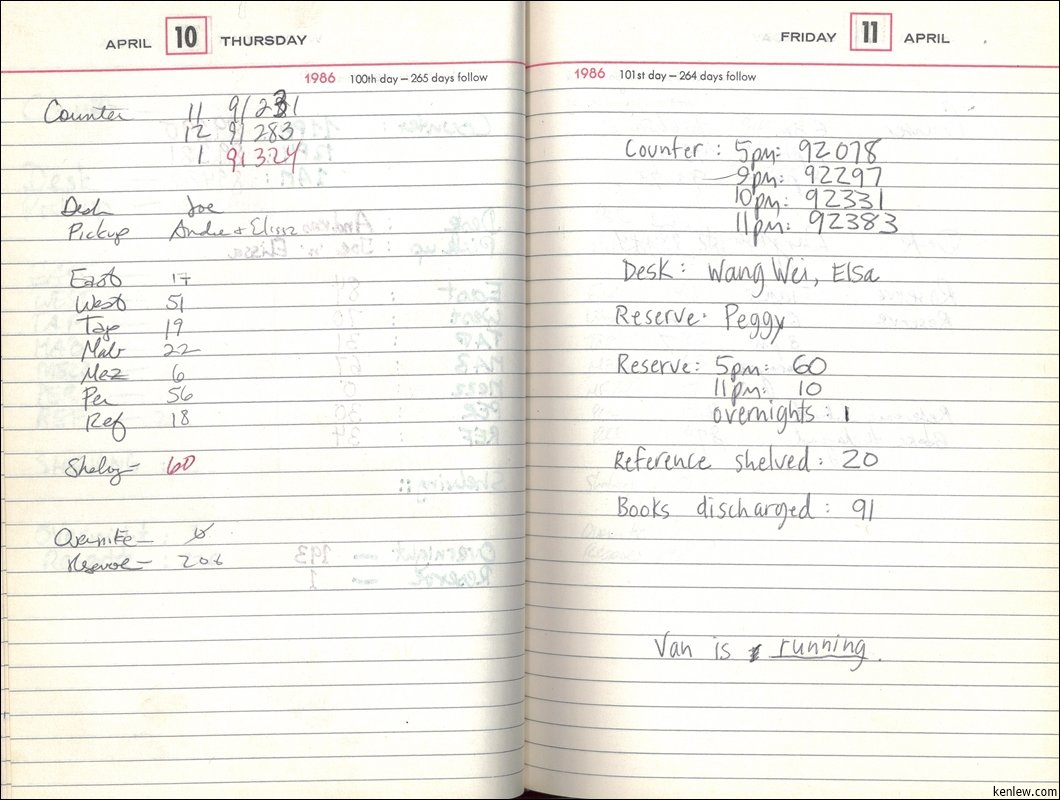 APRIL 10 THURSDAY
1986 100th day — 265 days follow
Counter 11 91231
12 91283
1 91324
Desk Joe
Pickup Andre + Elissa
East 17
West 51
Tap 19
Mab 22
Mez 6
Per 56
Ref 18
Shelvg — 60
Overnite —
Reserve — 206
FRIDAY 11 APRIL
1986 101st day — 264 days follow
Counter : 5pm: 92078
9pm: 92297
10pm: 92331
11pm: 92383
Desk: Wang Wei, Elsa
Reserve: Peggy
Reserve: 5pm: 60
11pm: 10
overnights : 1
Reference shelved : 20
Books discharged : 91
Van is running.
kenlew.com